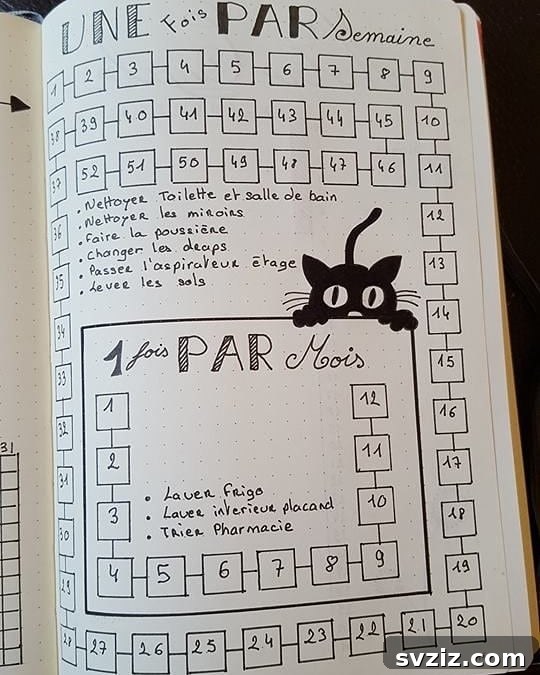 UNE Fois PAR Semaine
1 2 3 4 5 6 7 8 9
38 39 40 41 42 43 44 45 10
37 52 51 50 49 48 47 46 11
• Nettoyer Toilette et salle de bain
• Nettoyer les miroirs
• Faire la poussière
• Changer les draps
• Passer l'aspirateur étage
• Lever les sols
36 12
35 13
34 14
33 15
32 16
31 17
30 18
29 19
28 27 26 25 24 23 22 21 20
1 fois PAR Mois
1 12
2 11
3 10
• Laver Frigo
• Laver interieur placard
• Trier Pharmacie
4 5 6 7 8 9
31
svziz.com